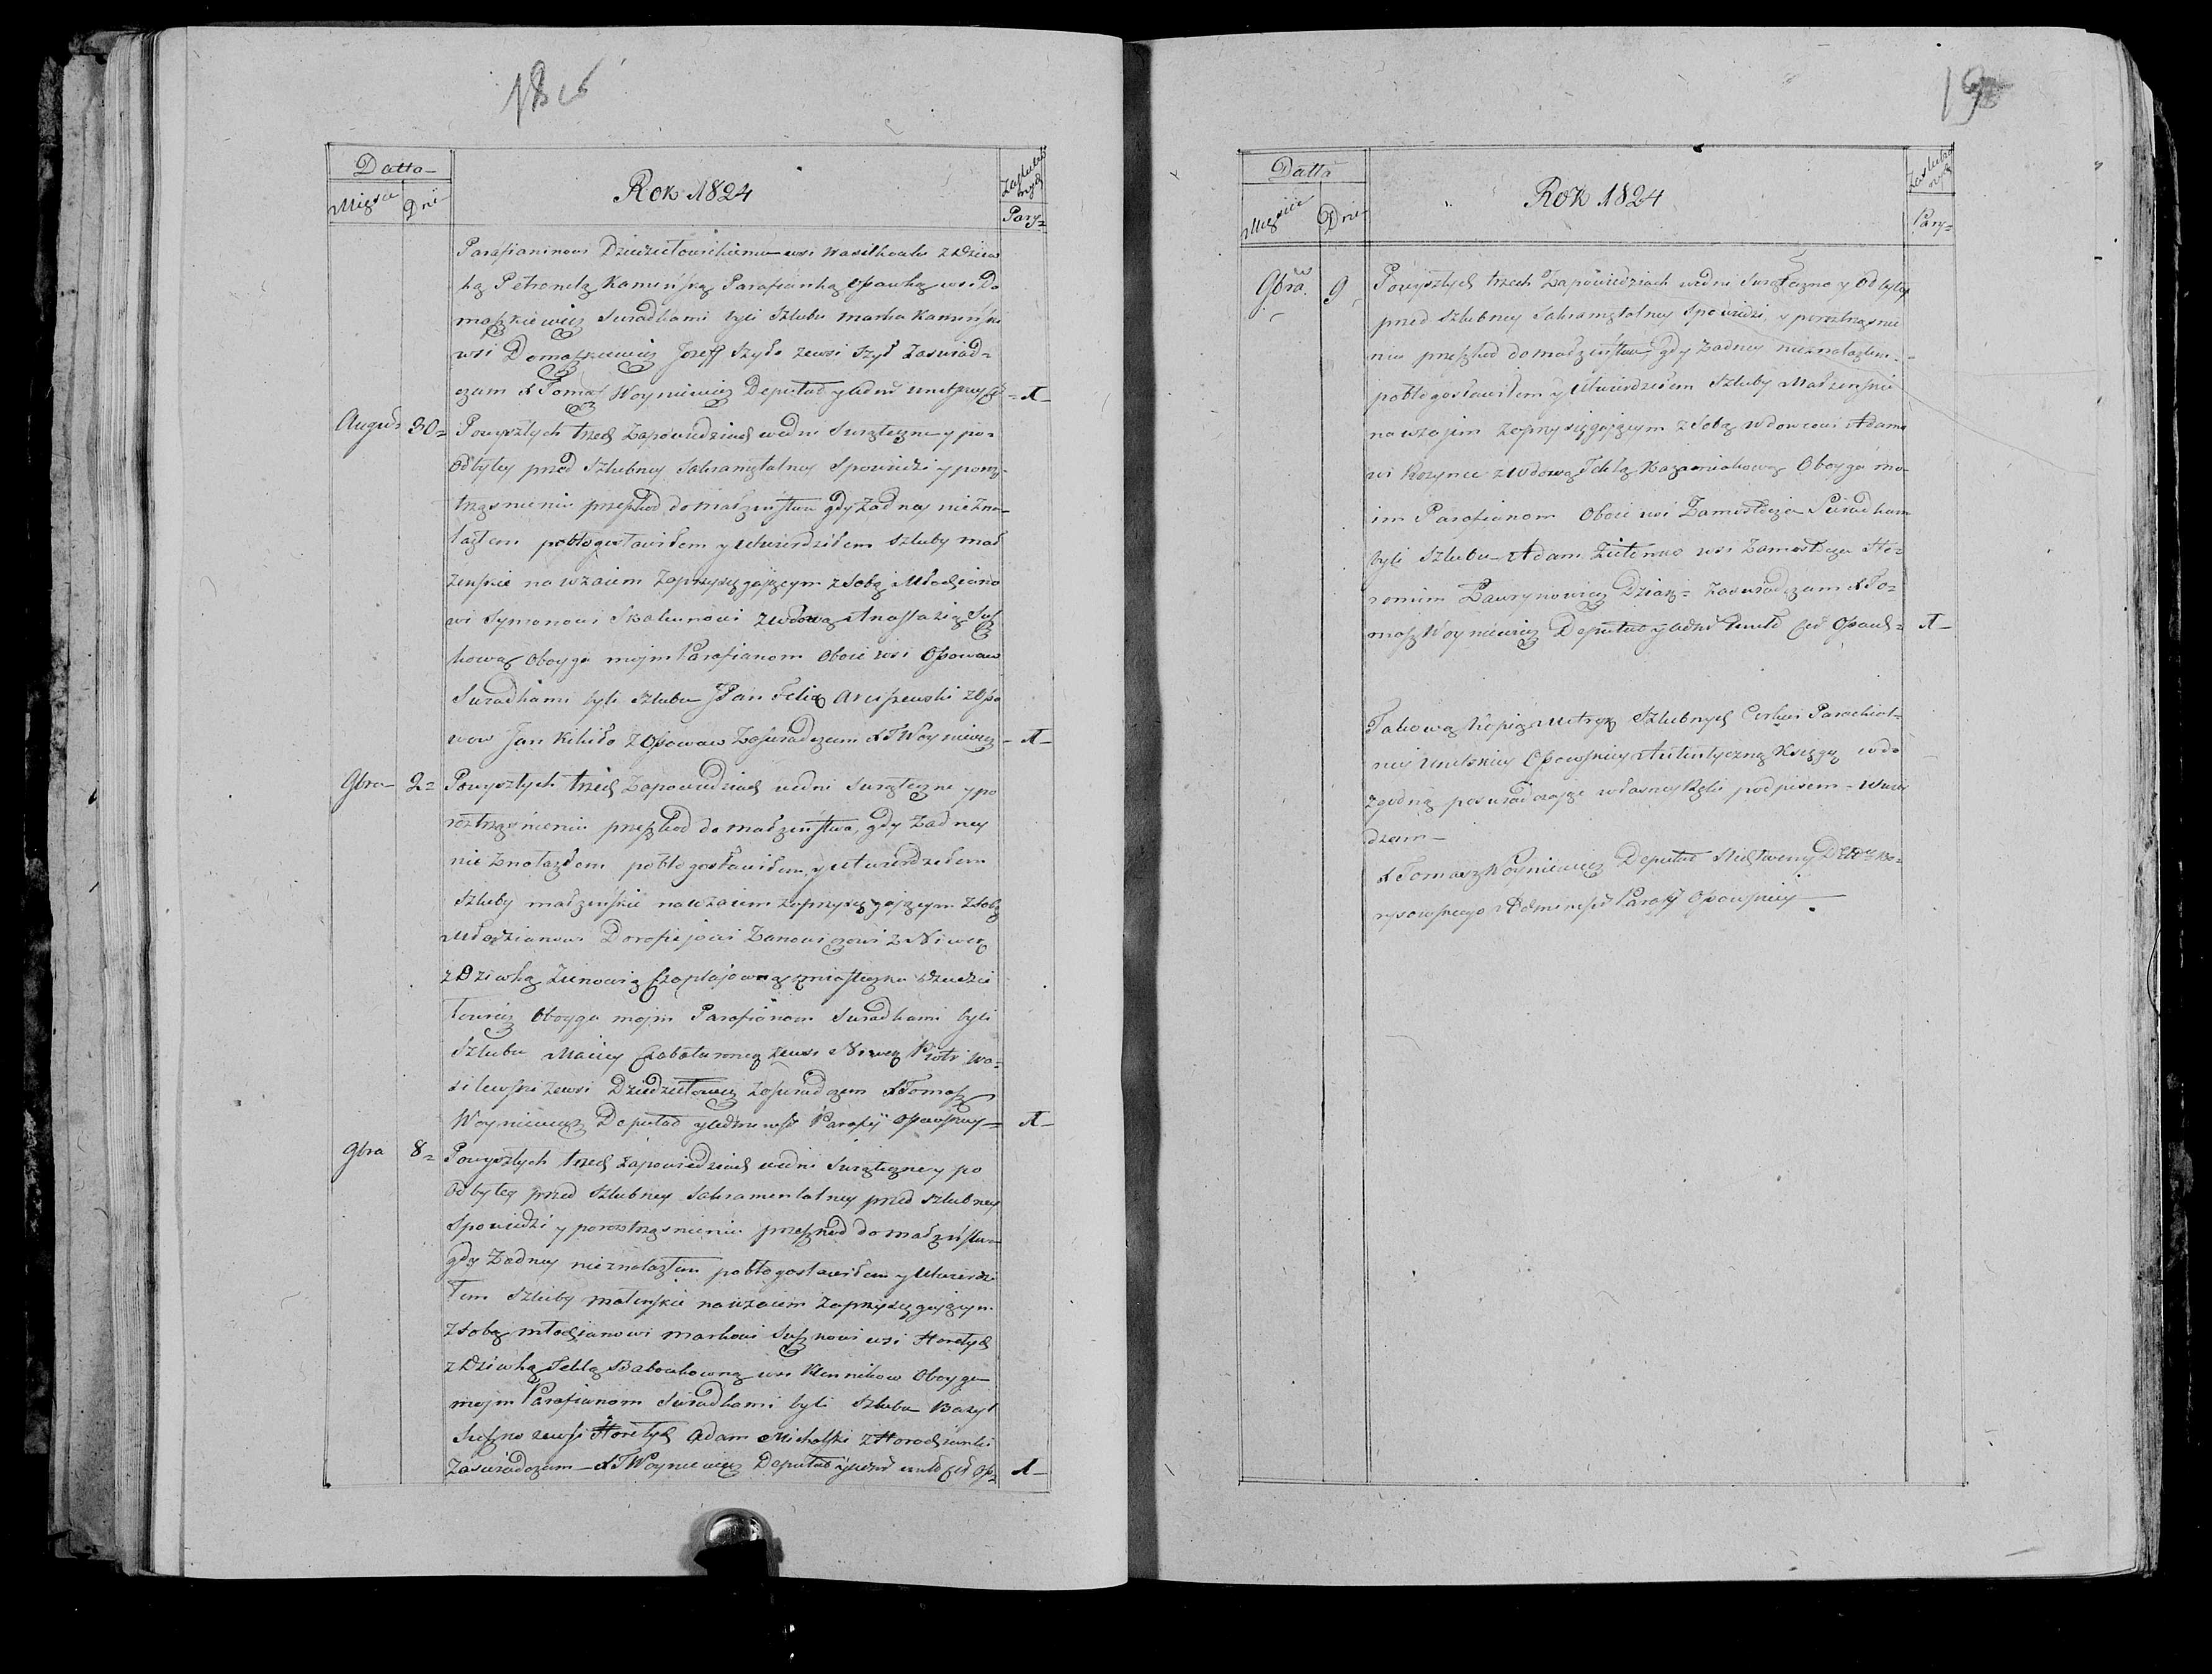 18
Datta
Rok 1824
Miesca Dni
Pary=
Parafianinowi wsi Wasilkowki z Dziew
ką Petronelą Kaminską Parafianką wsi Do
maszkiewicz Swiadkami byli Szlubu Marko Kaminski
wsi Domaszkiewicz Joseff Szyło zewsi Szył Zaswiad=
czam X Tomasz Woyniewicz Deputat
- 1 -
August 30=
Powyszłych trzech Zapowiedziach wedni Swiąteczne y po
odbytey przed Szlubney Sakramętalney Spowiedzi y poroz
trząsnieniu przeszkod do małzenstwa gdy zadney niezna-
lazłem pobłogosławiłem y Utwierdziłem Szluby mał
zenskie nawzaiem zaprzysięgaiącym z sobą Młodziano
wi Symonowi Skakunowi z wdową Anastazią Susz
kową Oboyga moim Parafianom Oboie wsi Ossowaw
Swiadkami byli Szlubu JPan Felix z Osso
wow Jan Kikiło z Ossowaw Zaswiadczam X T Woyniewicz
- 1 -
9bra - 2=
Powyszłych trzech Zapowiedziach wedni Swiąteczne y po
roztrząsnieniu przeszkod do małzenstwa, gdy Zadney
nie znalazłem pobłogosławiłem y Utwierdziłem
Szluby małzenskie nawzaiem zaprzysięgaiącym z sobą
Młodzianowi Dorofiejowi Zanowiczowi z Niwek
z Dziewką Zienowią Czaplajowną z miasteczka Dziedzi
łowicz Oboyga moim Parafianom Swiadkami byli
Szlubu Maciey zewsi Niwek Piotr Wa=
silewski zewsi Dziedziłowicz Zaswiadczam X Tomasz
Woyniewicz Deputat y Parafij Ossowskiey =
1 -
9bra 8=
Powyszłych trzech zapowiedziach wedni Swiąteczne y po
odbytey przed Szlubney Sakramentalney przed Szlubney
Spowiedzi y poroztrząsnieniu przeszkod do małzenstwa
gdy Zadney nieznalazłem pobłogosławiłem y Utwierdzi
łem Szluby małenskie nawzaiem zaprzysięgaiącym
z sobą młodzianowi Markowi Susznowi wsi Horełych
z Dziewką Teklą Babowkowną wsi Klennikow Oboyga
moim Parafianom Swiadkami byli Szlubu Bazyl
Suszno zewsi Horełych Adam Michalski z Horodzianki
Zaswiadczam X T Woyniewicz Deputat
1 -
19
Datta
Rok 1824
Miesiie Dni
Pary=
9bra 9
Powyszłych trzech Zapowiedziach wedni Swiąteczne y odbytey
przed Szlubney Sakramętalney Spowiedzi, y poroztrząsnie
niu przeszkod do małzenstwa, gdy zadney nieznalazłem
pobłogosławiłem y Utwierdziłem Szluby Małzenskie
nawzajem zaprzysięgającym z sobą wdowcowi Adamo
wi Kozynce z wdową Teklą Oboyga mo
im Parafianom Oboie wsi Zamostocza Swiadkam
byli Szlubu Adam wsi Zamostocza He=
ronim Ławrynowicz Dziak= Zaswiadczam X To=
masz Woyniewicz Deputat
1 -
Takową kopią Metryk Szlubnych Cerkwi Parochial=
ney Unitskiey Ossowskiey z Autentyczną Księgą
zgodną poswiadczając własnoręcznie podpisem
dzam -
X Tomasz Woyniewicz Deputat Bo=
rysowskiego Parafij Ossowskiey